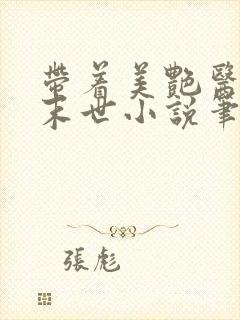 帶着美艷醫
末世小説筆
張彪